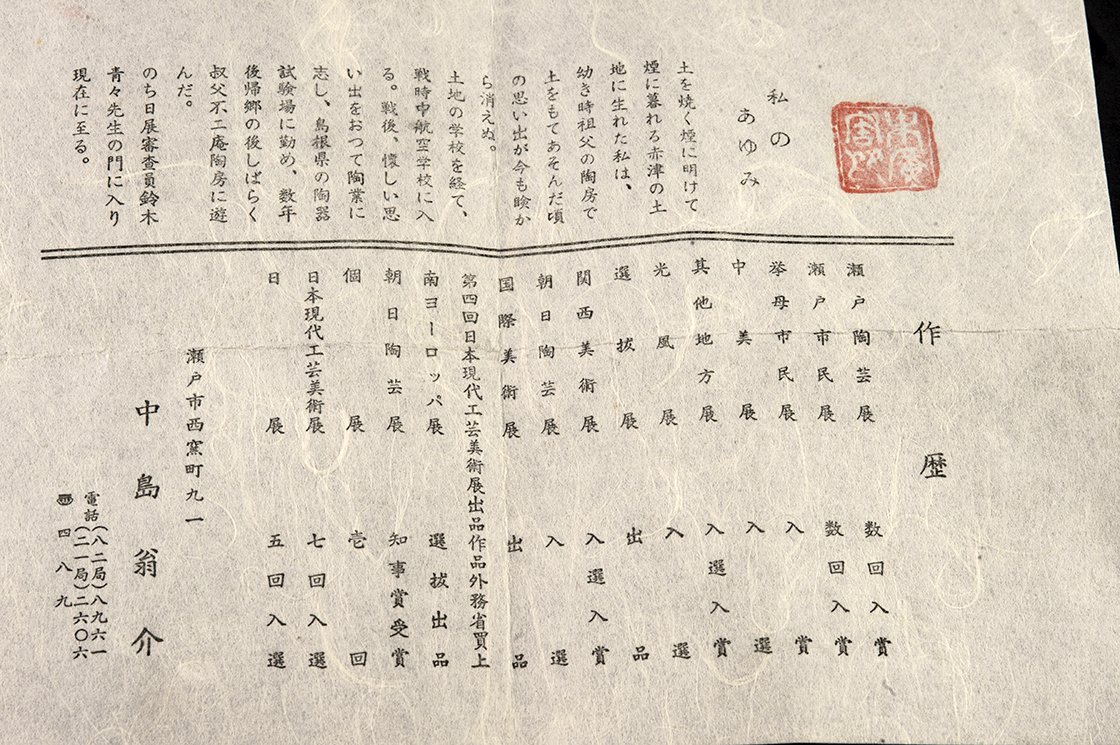 私の
あゆみ
土を焼く煙に明けて
煙に暮れる赤津の土
地に生れた私は、
幼き時祖父の陶房で
土をもてあそんだ頃
の思い出が今も瞼か
ら消えぬ。
土地の学校を経て、
戦時中航空学校に入
る。戦後、懐しい思
い出をおつて陶業に
志し、島根県の陶器
試験場に勤め、数年
後帰郷の後しばらく
叔父不二庵陶房に遊
んだ。
のち日展審査員鈴木
青々先生の門に入り
現在に至る。
作歴
瀬戸陶芸展 数回入賞
瀬戸市民展 数回入賞
挙母市民展 入賞
中美展 入選
其他地方展 入選入賞
光風展 入選
選抜展 出品
関西美術展 入選入賞
朝日陶芸展 入選
国際美術展 出品
第四回日本現代工芸美術展出品作品外務省買上
南ヨーロッパ展 選抜出品
朝日陶芸展 知事賞受賞
個展 壱回
日本現代工芸美術展 七回入選
日展 五回入選
瀬戸市西窯町九一
中島翁介
電話(八二局)八九六一
(二一局)二六〇六
四八九